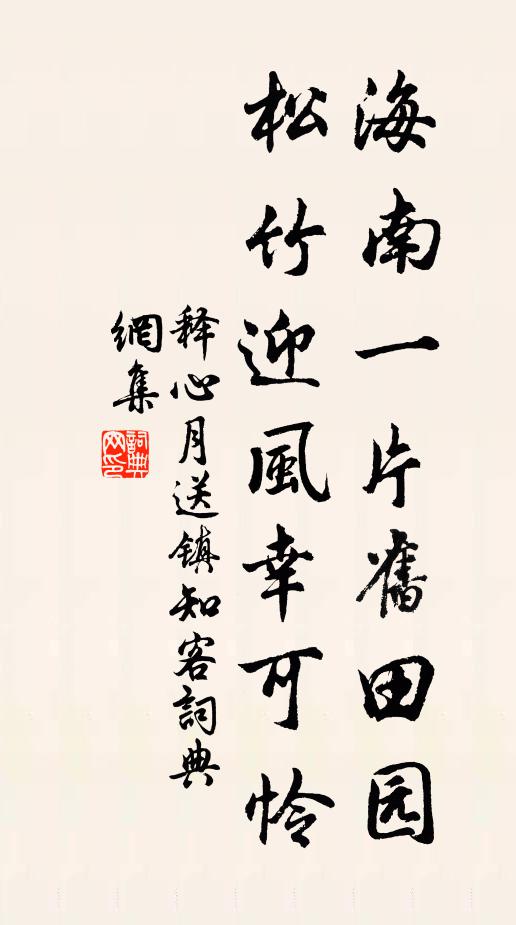 海南一片舊田园
松竹迎風幸可怜
释心月送镇知客詞典
網集
詞典
网印